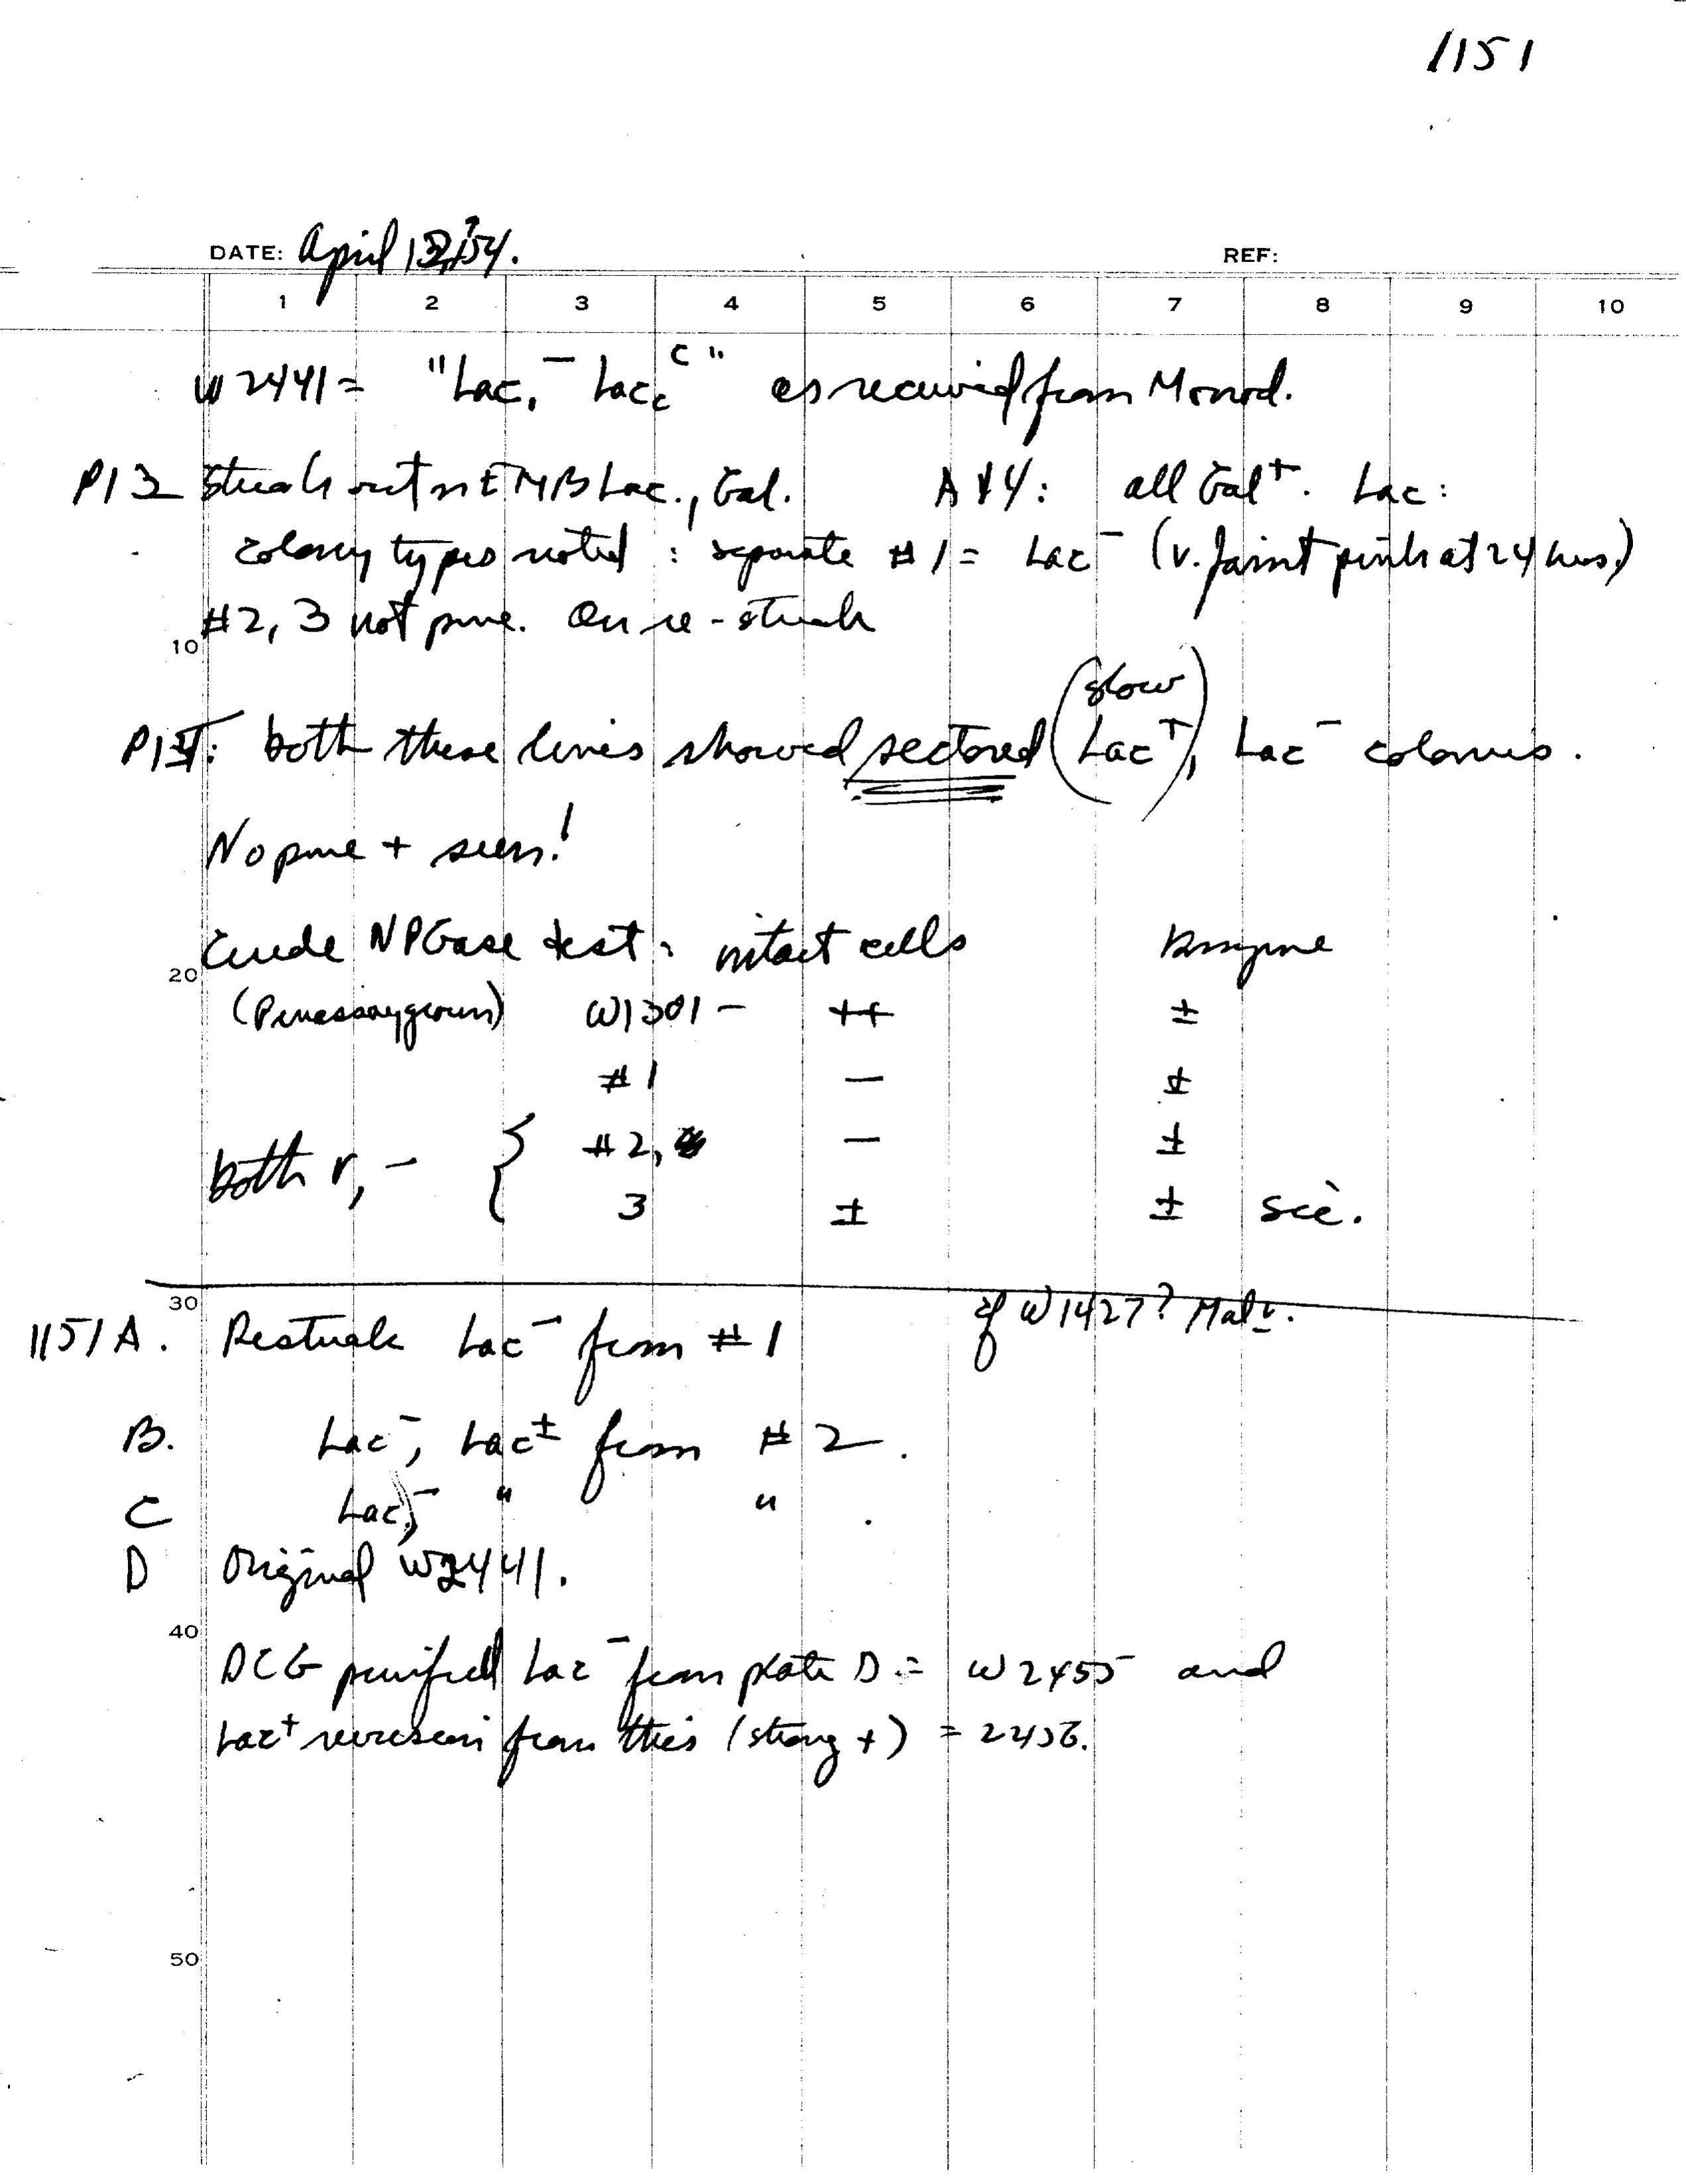 1151
DATE: April 13, '54.
REF:
1 2 3 4 5 6 7 8 9 10
W2441 = "Lac1- Lacc c" as received from Monod.
P13 Streak out on EMB Lac., Gal. A14: all Gal+. Lac:
colony types noted: separate #1 = Lac- (v. faint pink at 24 hrs.)
10 #2, 3 not pure. On re-streak
(slow
both these lines showed sectored Lac+), Lac- colonies.
No pure + seen!
20 Crude NPGase test: intact cells
(Penassay grown) W1301 - ++ ±
#1 - ±
#2, - ±
both v, - { 3 ± ±
30 cf W1427? Mal v.
1151A. Restreak Lac- from #1
B. Lac-, Lac± from #2.
C Lac-, " " .
D Original W2441.
40
DCG purified Lac- from plate D = W2455 and
Lac+ reversion from this (strong +) = 2456.
50